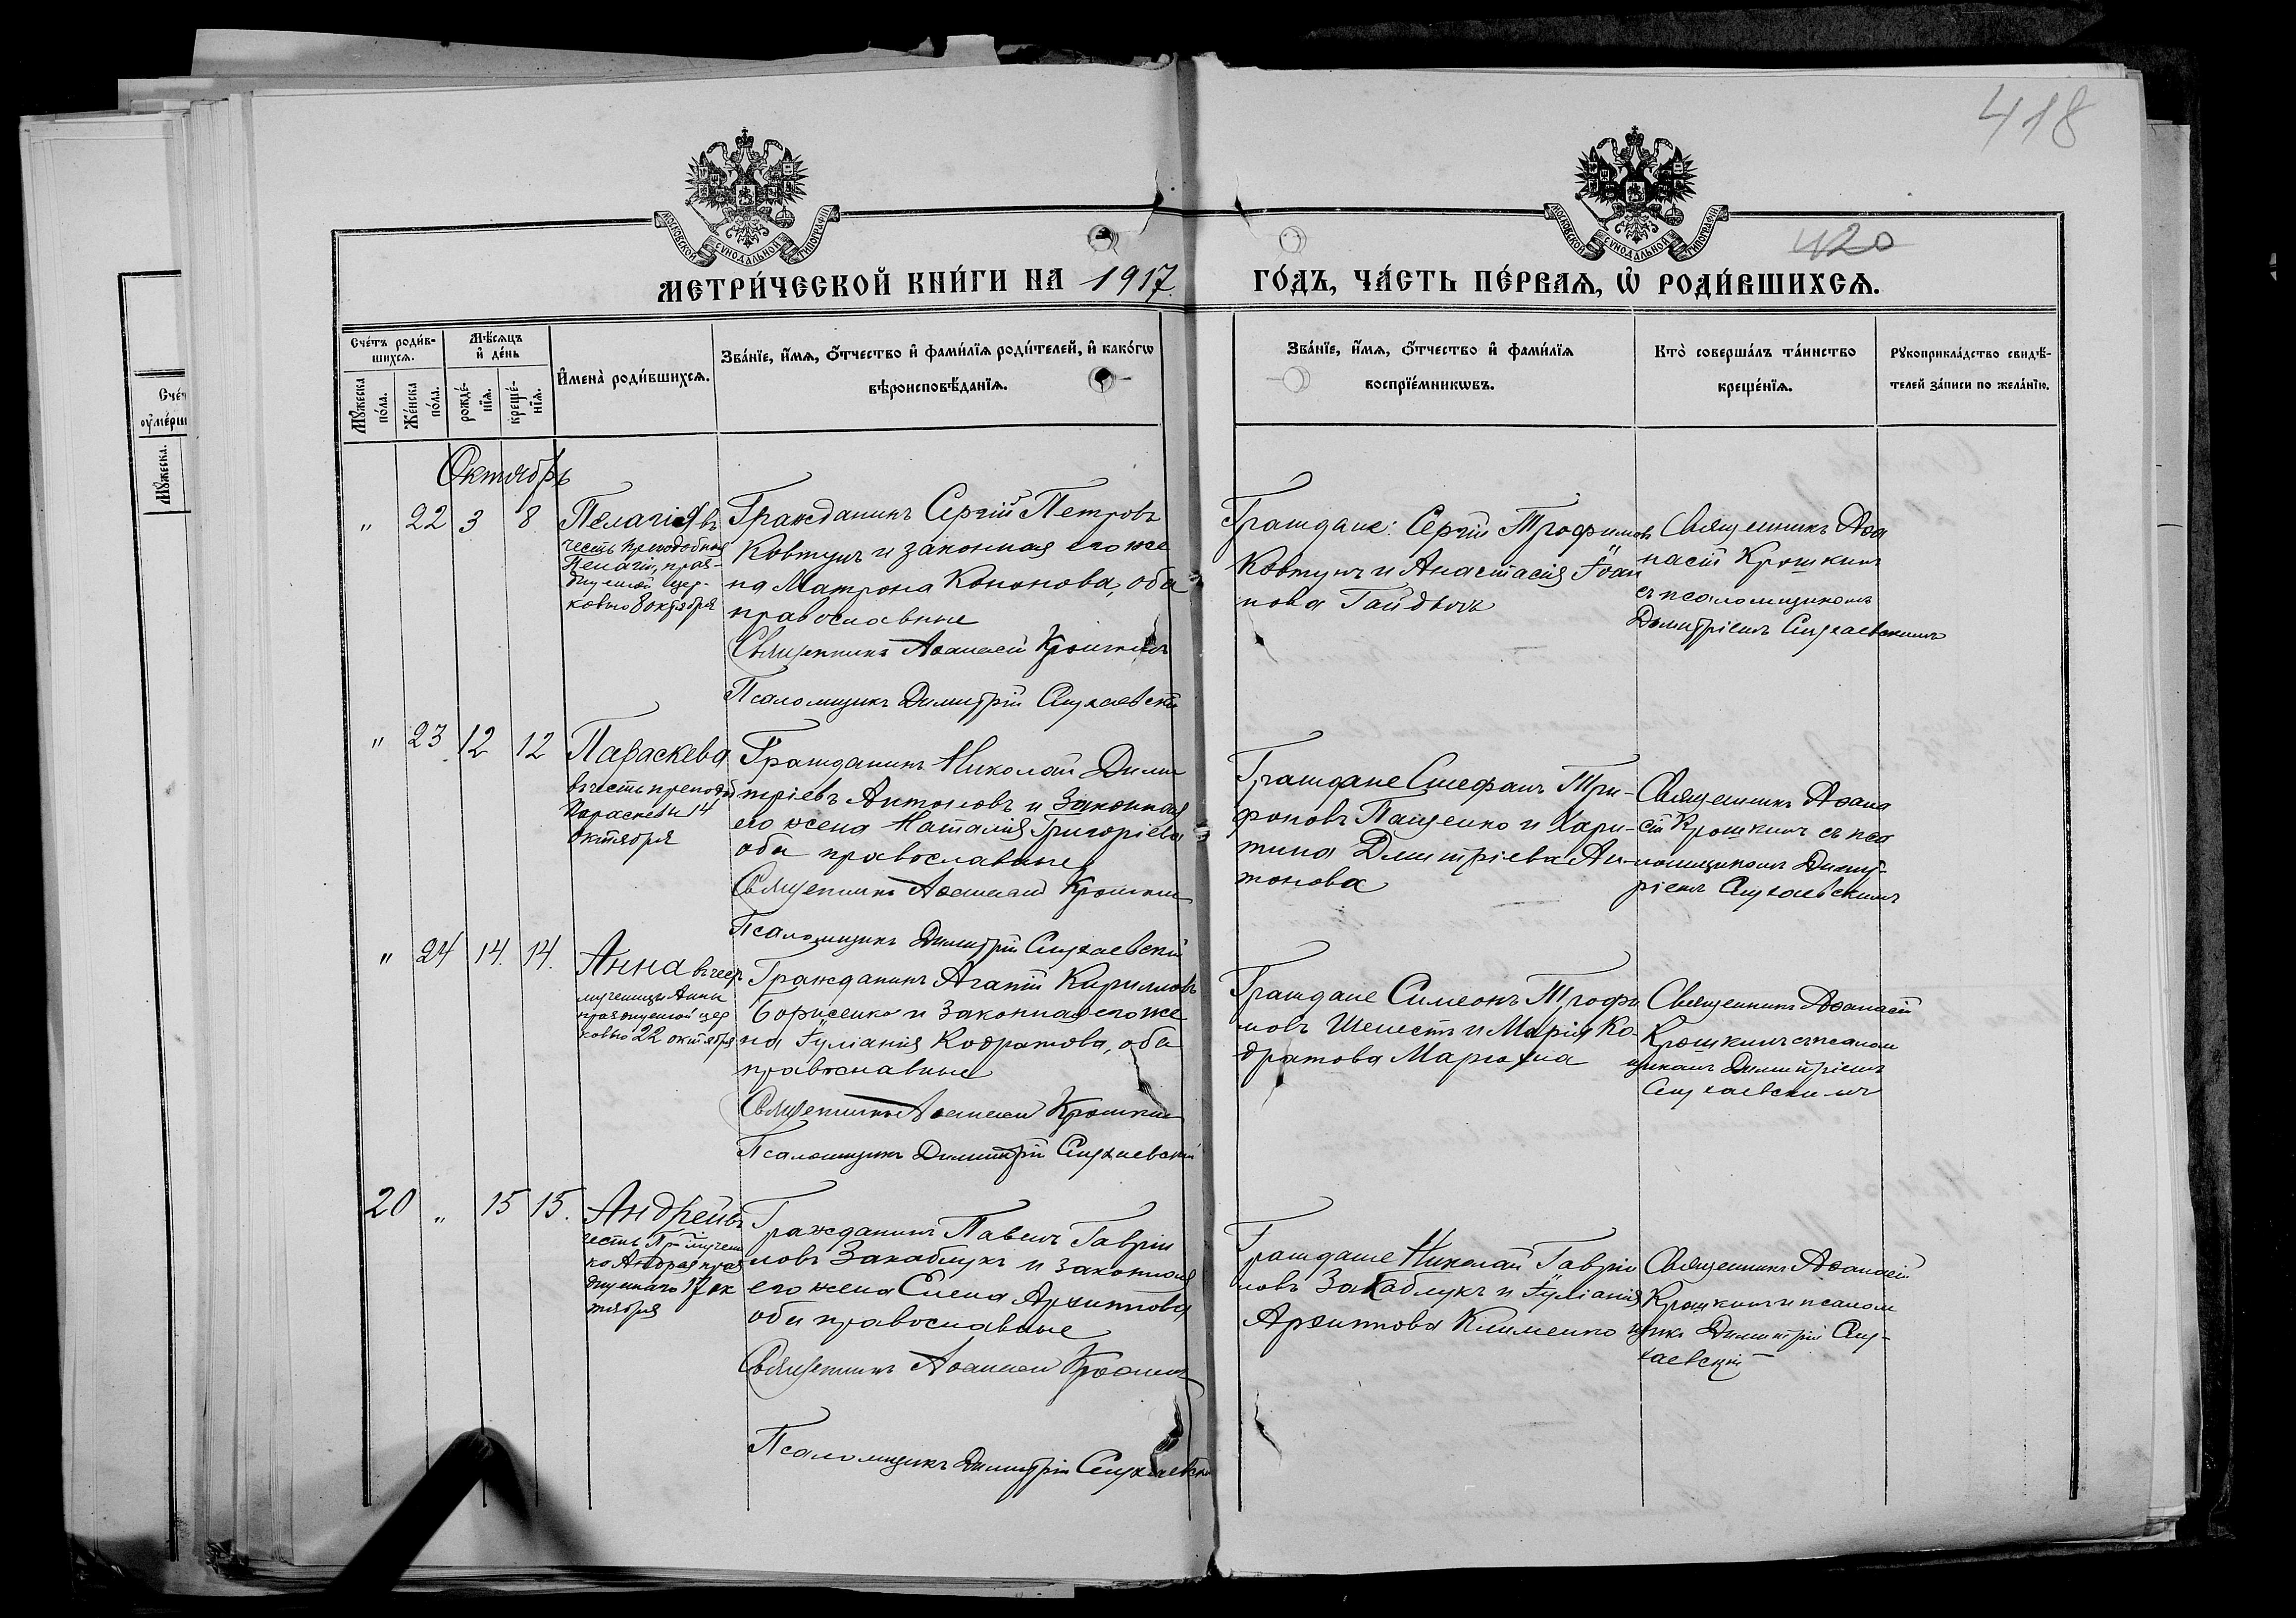 418
420
МОСКОВСКОЙ СѴНОДАЛЬНОЙ ТИПОГРАФІИ
МОСКОВСКОЙ СѴНОДАЛЬНОЙ ТИПОГРАФІИ
МЕТРИ́ЧЕСКОЙ КНИ́ГИ НА 1917 ГО́ДЪ, ЧА́СТЬ ПЕ́РВАѦ, Ѡ҆ РОДИ́ВШИХСѦ.
Сче́тъ роди́в-
шихсѧ.
Мѣ́сѧцъ
и҆ де́нь
Мꙋ́жеска
по́ла.
Же́нска
по́ла.
рожде́-
нїѧ.
креще́-
нїѧ.
И҆мена̀ роди́вшихсѧ.
Зва́нїе, и҆́мѧ, ѻ҆́тчество и҆ фами́лїѧ роди́телей, и҆ како́гѡ
вѣроисповѣ́данїѧ.
Зва́нїе, и҆́мѧ, ѻ҆́тчество и҆ фами́лїѧ
воспрїе́мникѡвъ.
Кто̀ соверша́лъ та́инство
креще́нїѧ.
Рꙋкоприкла́дство свидѣ́-
телей за́писи по жела́нїю.
Сче́т
оу҆ме́рш
Мꙋ́жеска.
Октябрь
" 22 3 8
Пелагія въ
честь преподобныя
Пелагіи, праз-
днуемой цер-
ковью 8 октября
Гражданинъ Сергій Петровъ
Ковтунъ и законная его же
на Матрона Кононова, оба
православные
Священникъ Аѳанасій Крошкинъ
Псаломщикъ Димитрій
Граждане: Сергій Трофимовъ
Ковтунъ и Анастасія Іоан
нова
Священникъ Аѳа
насій Крошкинъ
съ псаломщикомъ
Димитріемъ
" 23 12 12
Параскева
въ честь препод
Параскевы 14
октября
Гражданинъ Николай Дими
тріевъ Антоновъ и законная
его жена Наталія Григоріева
оба православные
Священникъ Аѳанасій Крошкинъ
Псаломщикъ Димитрій
Граждане Стефанъ Три-
фоновъ Пащенко и Хари-
тина Димитріева Ан-
тонова
Священникъ Аѳана
сій Крошкинъ съ пса
ломщикомъ Димит-
ріемъ
" 24 14. 14.
Анна въ чест
мученицы Анны
празднуемой цер
ковью 22 октября
Гражданинъ Агапій Кирилловъ
Борисенко и законная его же
на Іуліанія Кодратова, оба
православные
Священникъ Аѳанасій Крошкинъ
Псаломщикъ Димитрій
Граждане Симеонъ Трофи
мовъ Шелестъ и Марія Ко-
дратова
Священникъ Аѳанасій
Крошкинъ съ псалом
щикомъ Димитріемъ
20 " 15 15.
Андрей въ
честь Пр. мучени
ка Андрея праз
днуемаго 17 ок
тября
Гражданинъ Павелъ Гаврии
ловъ Закаблукъ и законная
его жена Елена Архипова
оба православные
Священникъ Аѳанасій Крошкинъ
Псаломщикъ Димитрій
Граждане Николай Гаврии
ловъ Закаблукъ и Іуліанія
Архипова Клименко
Священникъ Аѳанасій
Крошкинъ и псалом
щикъ Димитрій